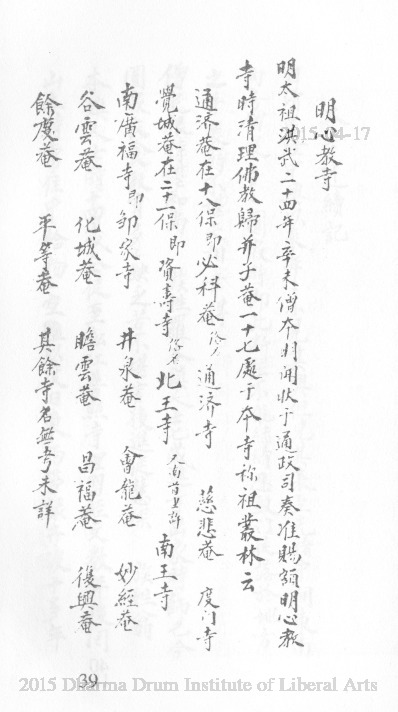 明心教寺
明太祖洪武二十四年辛未僧本明開狀于通政司奏准賜額明心教
寺時清理佛教歸并子菴一十七處于本寺称祖叢林云
通济菴在十八保即必科菴 通济寺 慈悲菴 度门寺
覺城菴在二十一保即資壽寺 北王寺 南王寺
南廣福寺即邹家寺 井泉菴 會龍菴 妙經菴
谷雲菴 化城菴 瞻雲菴 昌福菴 復興菴
餘慶菴 平等菴 其餘寺名無考未詳
2015-04-17
39
2015 Dharma Drum Institute of Liberal Arts